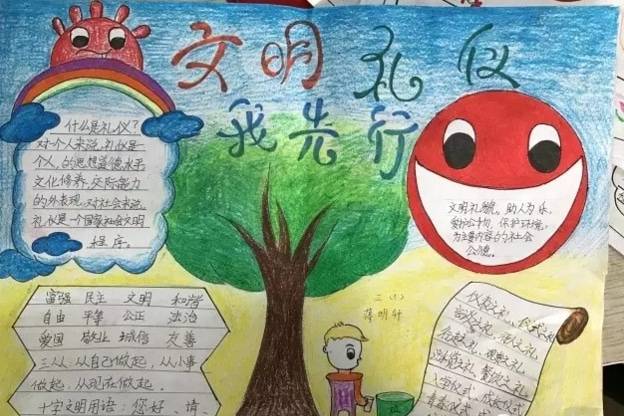 文明礼仪
我先行
什么是礼仪?
对个人来说,礼仪是
个人的思想道德水平
文化修养,交际能力
的外表现,对社会来说,
礼仪是一个国家社会文明
程序。
文明礼貌。助人为乐,
爱护公物,保护环境,
为主要内容的社会
公德。
富强 民主 文明 和谐
自由 平等 公正 法治
爱国 敬业 诚信 友善
三从:从自己做起,从小事
做起,从现在做起.
十字文明用语:您好、请、
二(1)
蒋明轩
仪表之礼、仪式之礼
言谈之礼、待人之礼